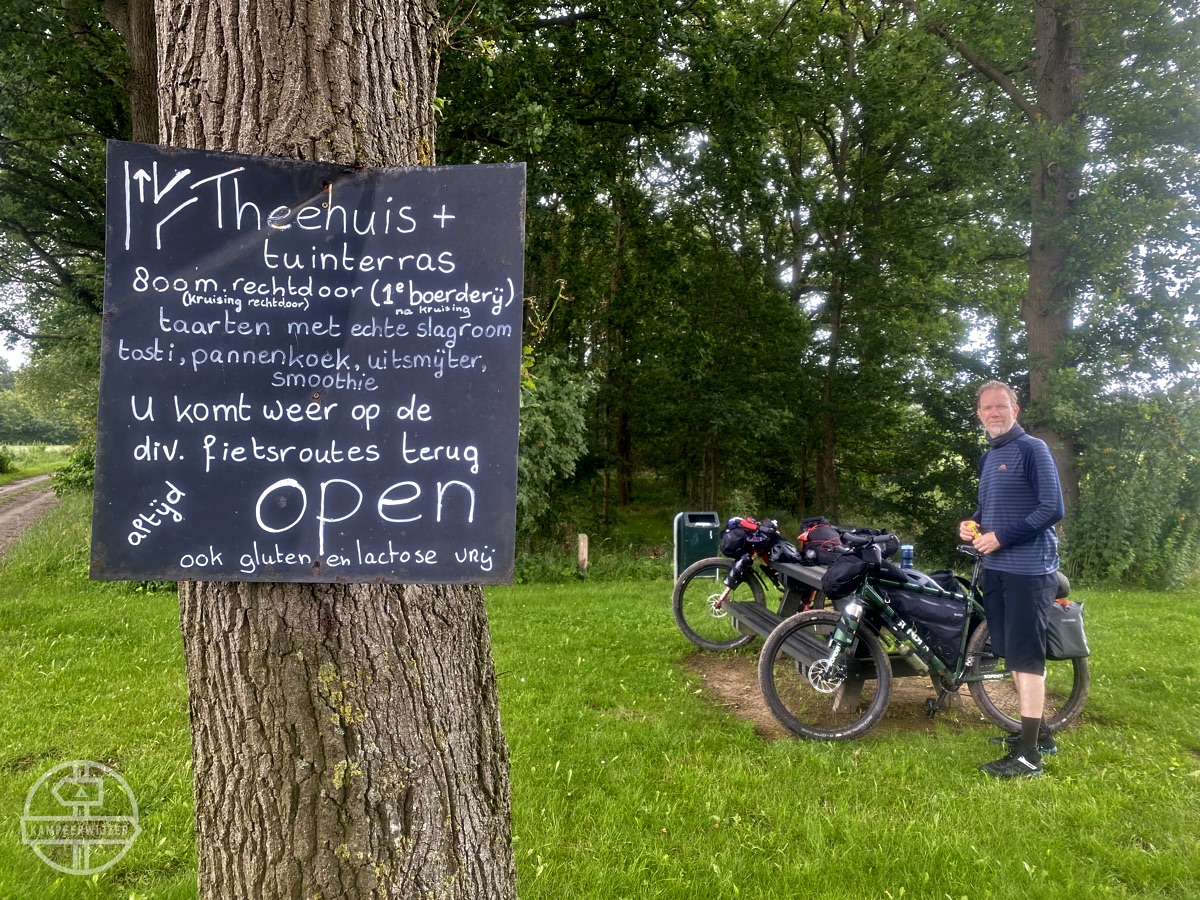 Theehuis +
tuinterras
800 m. rechtdoor (1e boerderij)
(kruising rechtdoor) na kruising
taarten met echte slagroom
tosti, pannenkoek, uitsmijter,
smoothie
U komt weer op de
div. fietsroutes terug
altijd open
ook gluten en lactose vrij
KAMPEERWIJZER